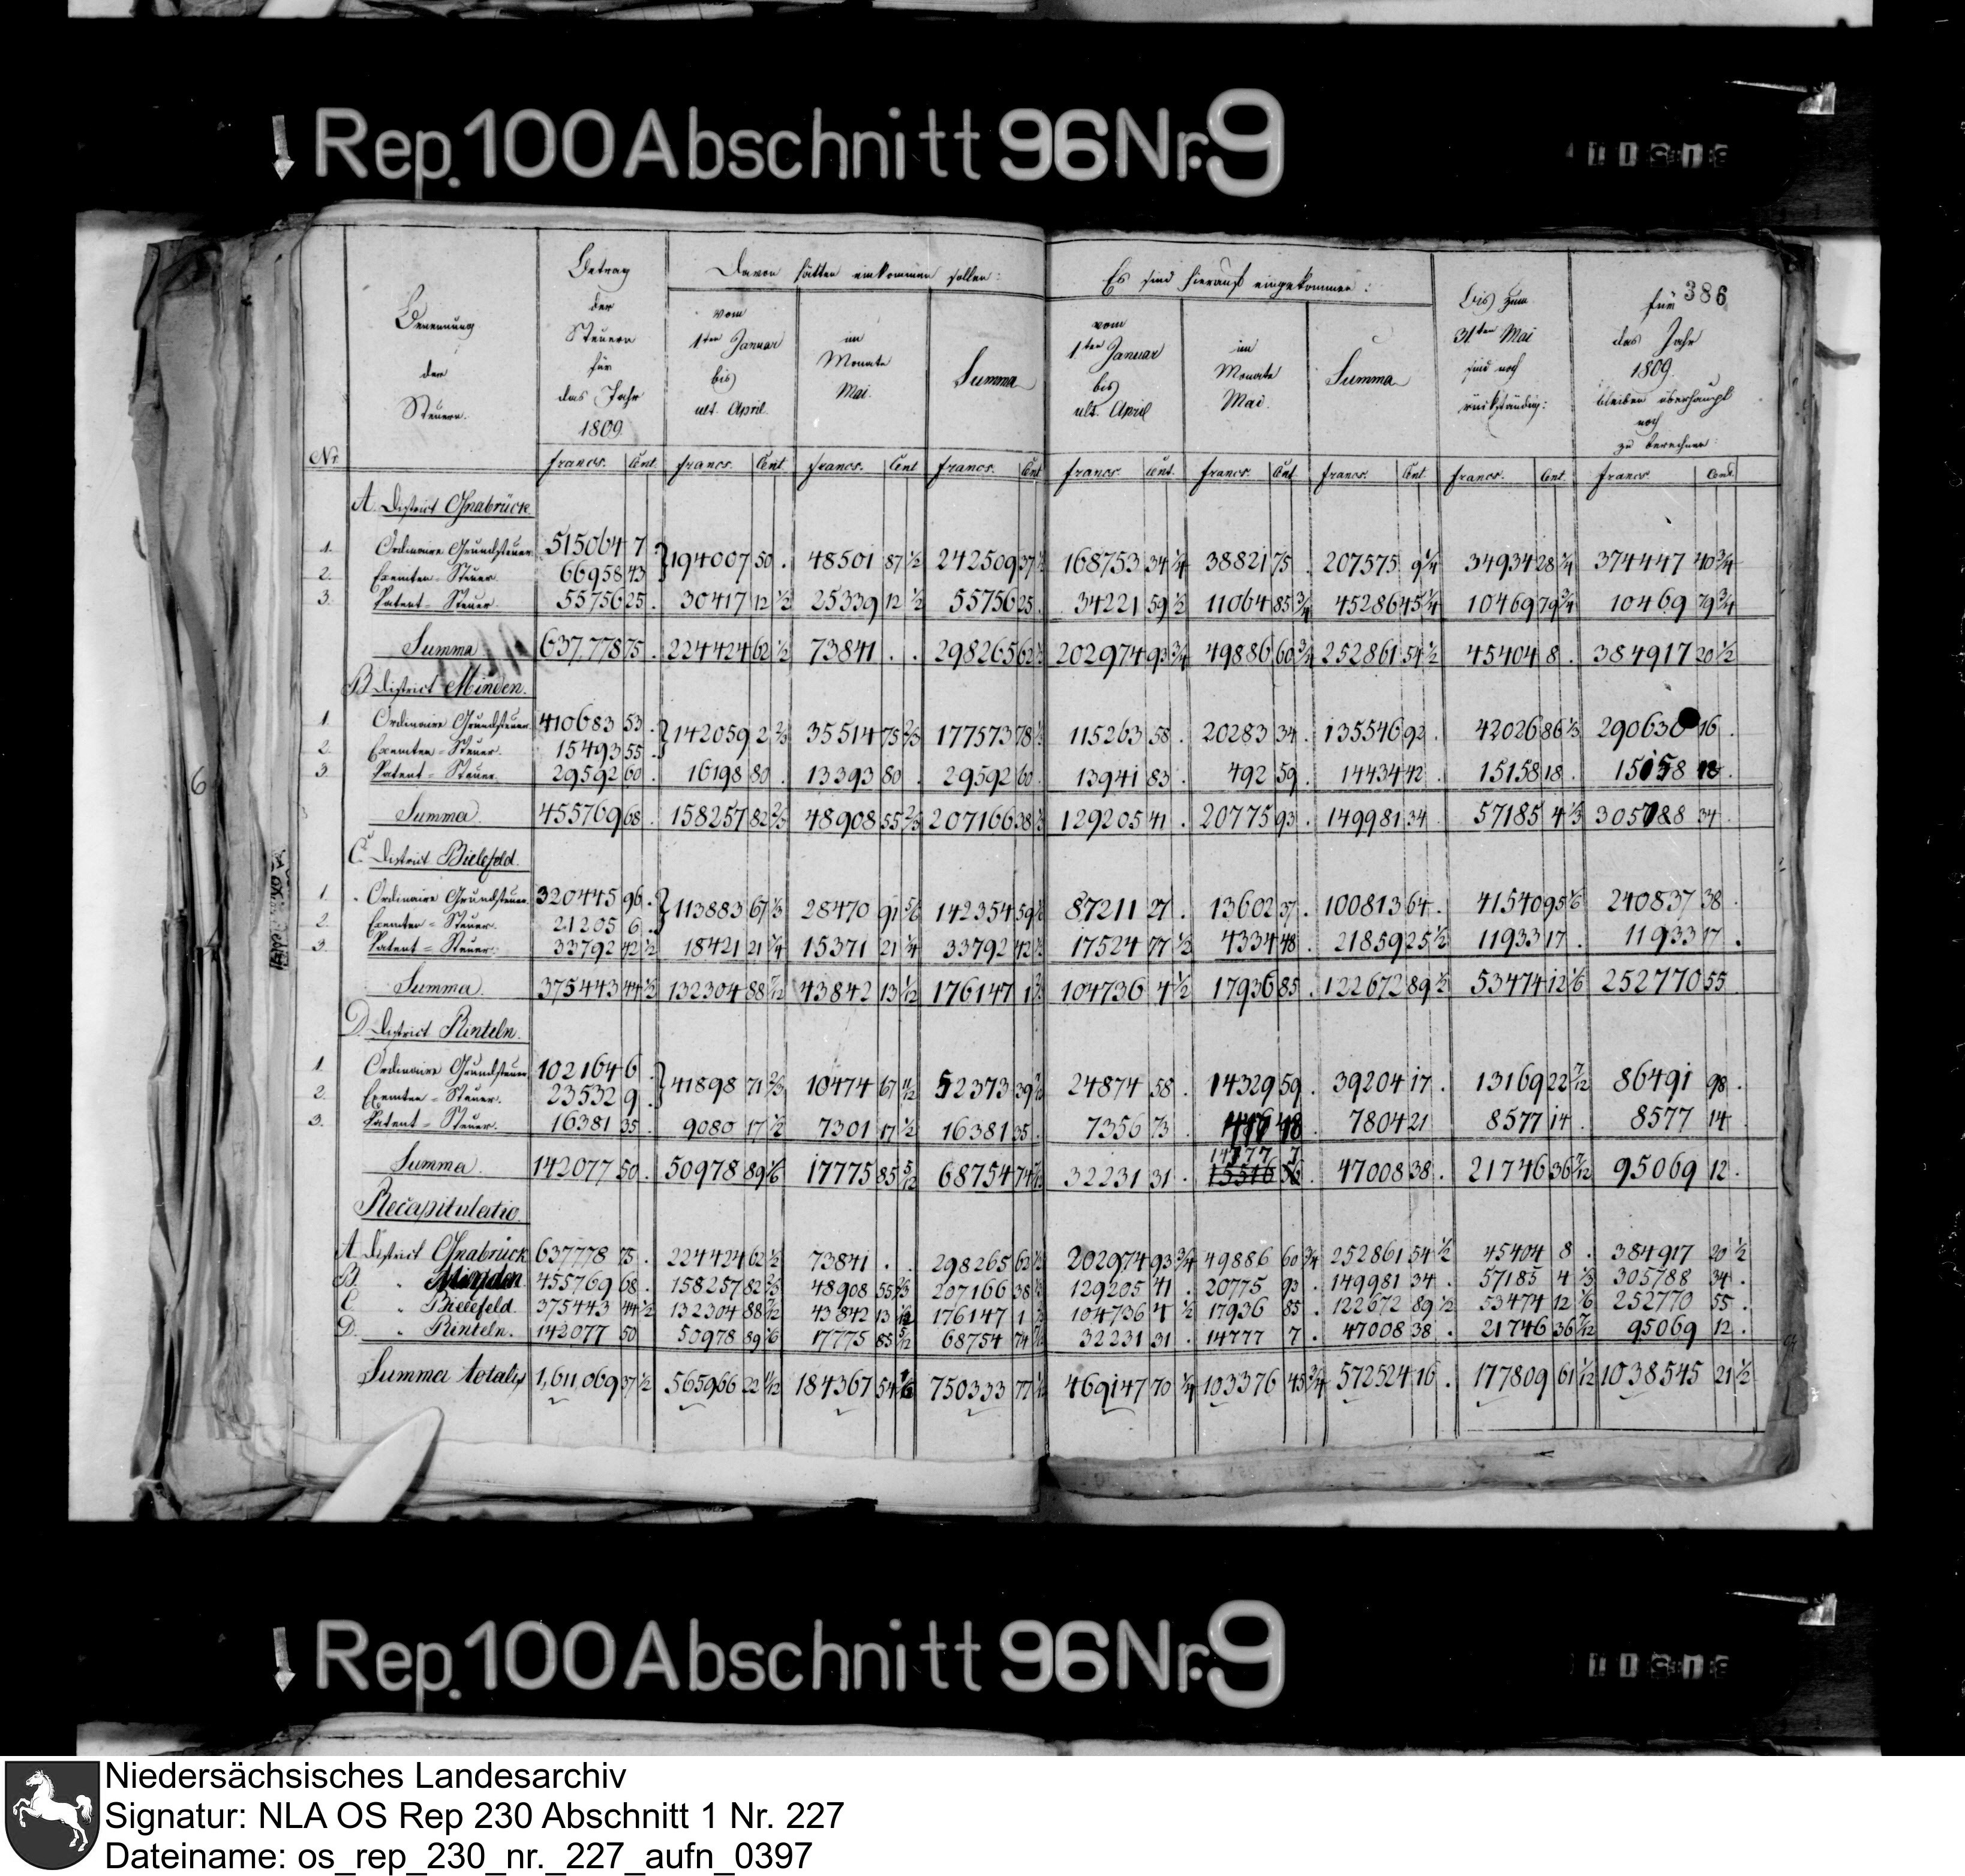 Rep. 100 Abschnitt 96 Nr. 9
386
Benennung der Steuern.
Betrag der Steuern für das Jahr 1809
Davon hätten einkommen sollen:
vom 1ten Januar bis ult. April
im Monate Mai.
Summa
Es sind hierauf eingekommen:
vom 1ten Januar bis ult. April
im Monate Mai.
Summa
bis zum 31ten Mai sind noch rückständig:
für das Jahr 1809. bleiben überhaupt noch zu berechnen:
Nr. francs. Cent. francs. Cent. francs. Cent francs. Cent francs. Cent. francs. Cent francs. Cent francs. Cent. francs. Cent.
A. District Osnabrück.
1. Ordinaire Grundsteuer 515064 7
2. Exemten-Steuer. 66958 43 . } 194007 50 . 48501 87 1/2 242509 37 1/2 168753 34 1/4 38821 75 . 207575 9 1/4 34934 28 1/4 374447 40 3/4
3. Patent-Steuer 55756 25 . 30417 12 1/2 25339 12 1/2 55756 25 . 34221 59 1/2 11064 85 3/4 45286 45 1/4 10469 79 3/4 10469 79 3/4
Summa 637,778 75 . 224424 62 1/2 73841 . . 298265 62 1/2 202974 93 3/4 49886 60 3/4 252861 54 1/2 45404 8 . 384917 20 1/2
B District Minden.
1. Ordinaire Grundsteuer 410683 53 .
2. Exemten-Steuer. 15493 55 . } 142059 2 2/3 35514 75 2/3 177573 78 1/3 115263 58 . 20283 34 . 135546 92 . 42026 86 1/3 290630 16 .
3. Patent-Steuer 29592 60 . 16198 80 . 13393 80 . 29592 60 . 13941 83 . 492 59 . 14434 42 . 15158 18 . 15158 18 .
Summa. 455769 68 . 158257 82 2/3 48908 55 2/3 207166 38 1/3 129205 41 . 20775 93 . 149981 34 . 57185 4 1/3 305788 34 .
C. District Bielefeld.
1. Ordinaire Grundsteuer 320445 96 .
2. Exemten-Steuer. 21205 6 . } 113883 67 1/3 28470 91 5/6 142354 59 1/6 87211 27 . 13602 37 . 100813 64 . 41540 95 1/6 240837 38 .
3. Patent-Steuer. 33792 42 1/2 18421 21 1/4 15371 21 1/4 33792 42 1/2 17524 77 1/2 4334 48 . 21859 25 1/2 11933 17 . 11933 17 .
Summa. 375443 44 1/2 132304 88 7/12 43842 13 1/12 176147 1 2/3 104736 4 1/2 17936 85 . 122672 89 1/2 53474 12 1/6 252770 55 .
D. District Rinteln.
1. Ordinaire Grundsteuer 102164 6 .
2. Exemten-Steuer. 23532 9 . } 41898 71 2/3 10474 67 11/12 52373 39 7/12 24874 58 . 14329 59 . 39204 17 . 13169 22 7/12 86491 98 .
3. Patent-Steuer. 16381 35 . 9080 17 1/2 7301 17 1/2 16381 35 . 7356 73 . 7804 21 8577 14 . 8577 14 .
Summa. 142077 50 . 50978 89 1/6 17775 85 5/12 68754 74 7/12 32231 31 . 14777 7 15516 56 . 47008 38 . 21746 36 7/12 95069 12 .
Recapitulatio.
A. District Osnabrück 637778 75 . 224424 62 1/2 73841 . . 298265 62 1/2 202974 93 3/4 49886 60 3/4 252861 54 1/2 45404 8 . 384917 20 1/2
B. " Minden. 455769 68 . 158257 82 2/3 48908 55 2/3 207166 38 1/3 129205 41 . 20775 93 . 149981 34 . 57185 4 1/3 305788 34 .
C. " Bielefeld. 375443 44 1/2 132304 88 7/12 43842 13 1/12 176147 1 2/3 104736 4 1/2 17936 85 . 122672 89 1/2 53474 12 1/6 252770 55 .
D. " Rinteln. 142077 50 50978 89 1/6 17775 85 5/12 68754 74 7/12 32231 31 . 14777 7 . 47008 38 . 21746 36 7/12 95069 12 .
Summa totalis 1,611,069 37 1/2 565966 22 11/12 184367 54 1/6 750333 77 1/12 469147 70 1/4 103376 45 3/4 572524 16 . 177809 61 1/12 1038545 21 1/2
Rep. 100 Abschnitt 96 Nr. 9
Niedersächsisches Landesarchiv
Signatur: NLA OS Rep 230 Abschnitt 1 Nr. 227
Dateiname: os_rep_230_nr._227_aufn_0397